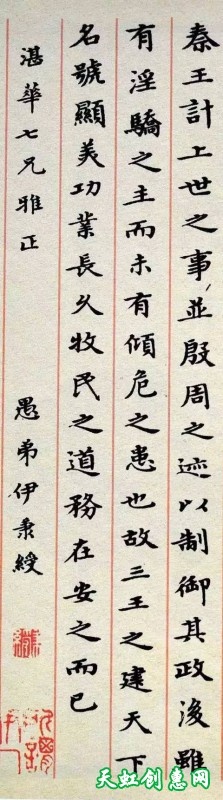 秦王計上世之事並殷周之迹以制御其政後雖
有淫驕之主而未有傾危之患也故三王之建天下
名號顯美功業長久牧民之道務在安之而已
湛華七兄雅正
愚弟伊秉綬
天虹创惠网